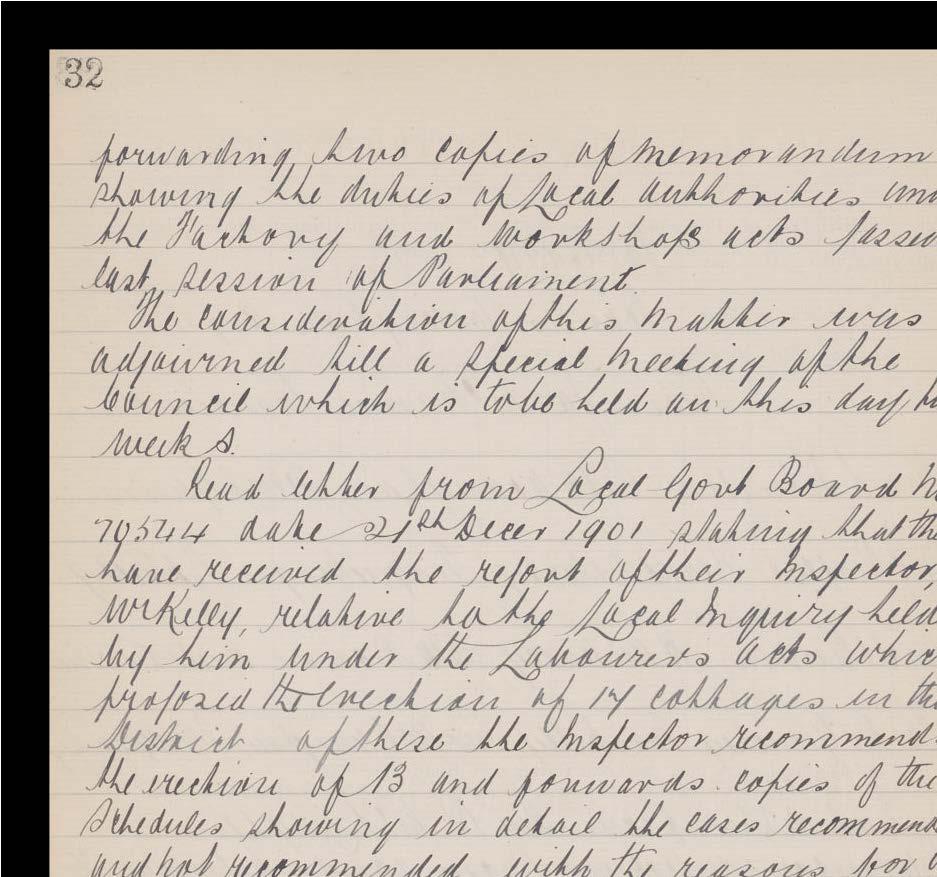 32
forwarding two copies of Memorandum
showing the duties of Local Authorities un
the Factory and Workshops acts passed
last session of Parliament.
The consideration of this Matter was
adjourned till a special Meeting of the
Council which is to be held on this day
weeks.
Read letter from Local Govt Board No
70544 date 21st Decer 1901 stating that the
have received the report of their Inspector,
Mr Kelly, relative to the Local Inquiry held
by him under the Labourers acts which
proposed the erection of 17 cottages in this
District of these the Inspector recommend
the erection of 13 and forwards copies of the
Schedules showing in detail the cases recommend
and not recommended with the reasons for